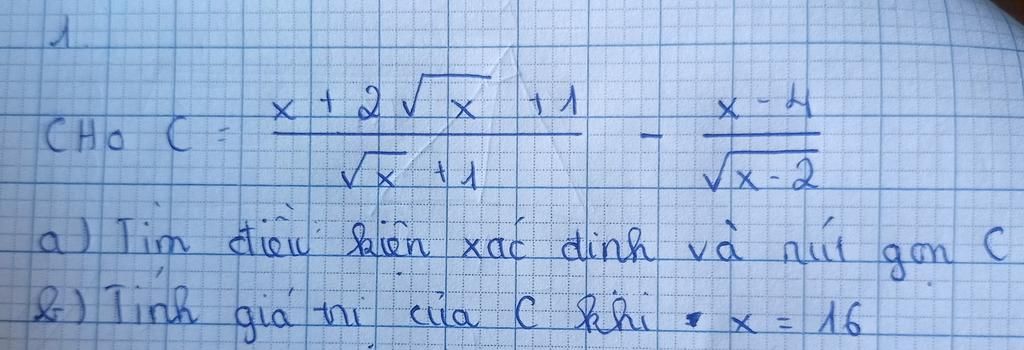 1.
CHO C = \frac{x + 2\sqrt{x} + 1}{\sqrt{x} + 1} - \frac{x - 4}{\sqrt{x - 2}}
a) Tìm điều kiện xác định và rút gọn C
b) Tính giá trị của C khi x = 16